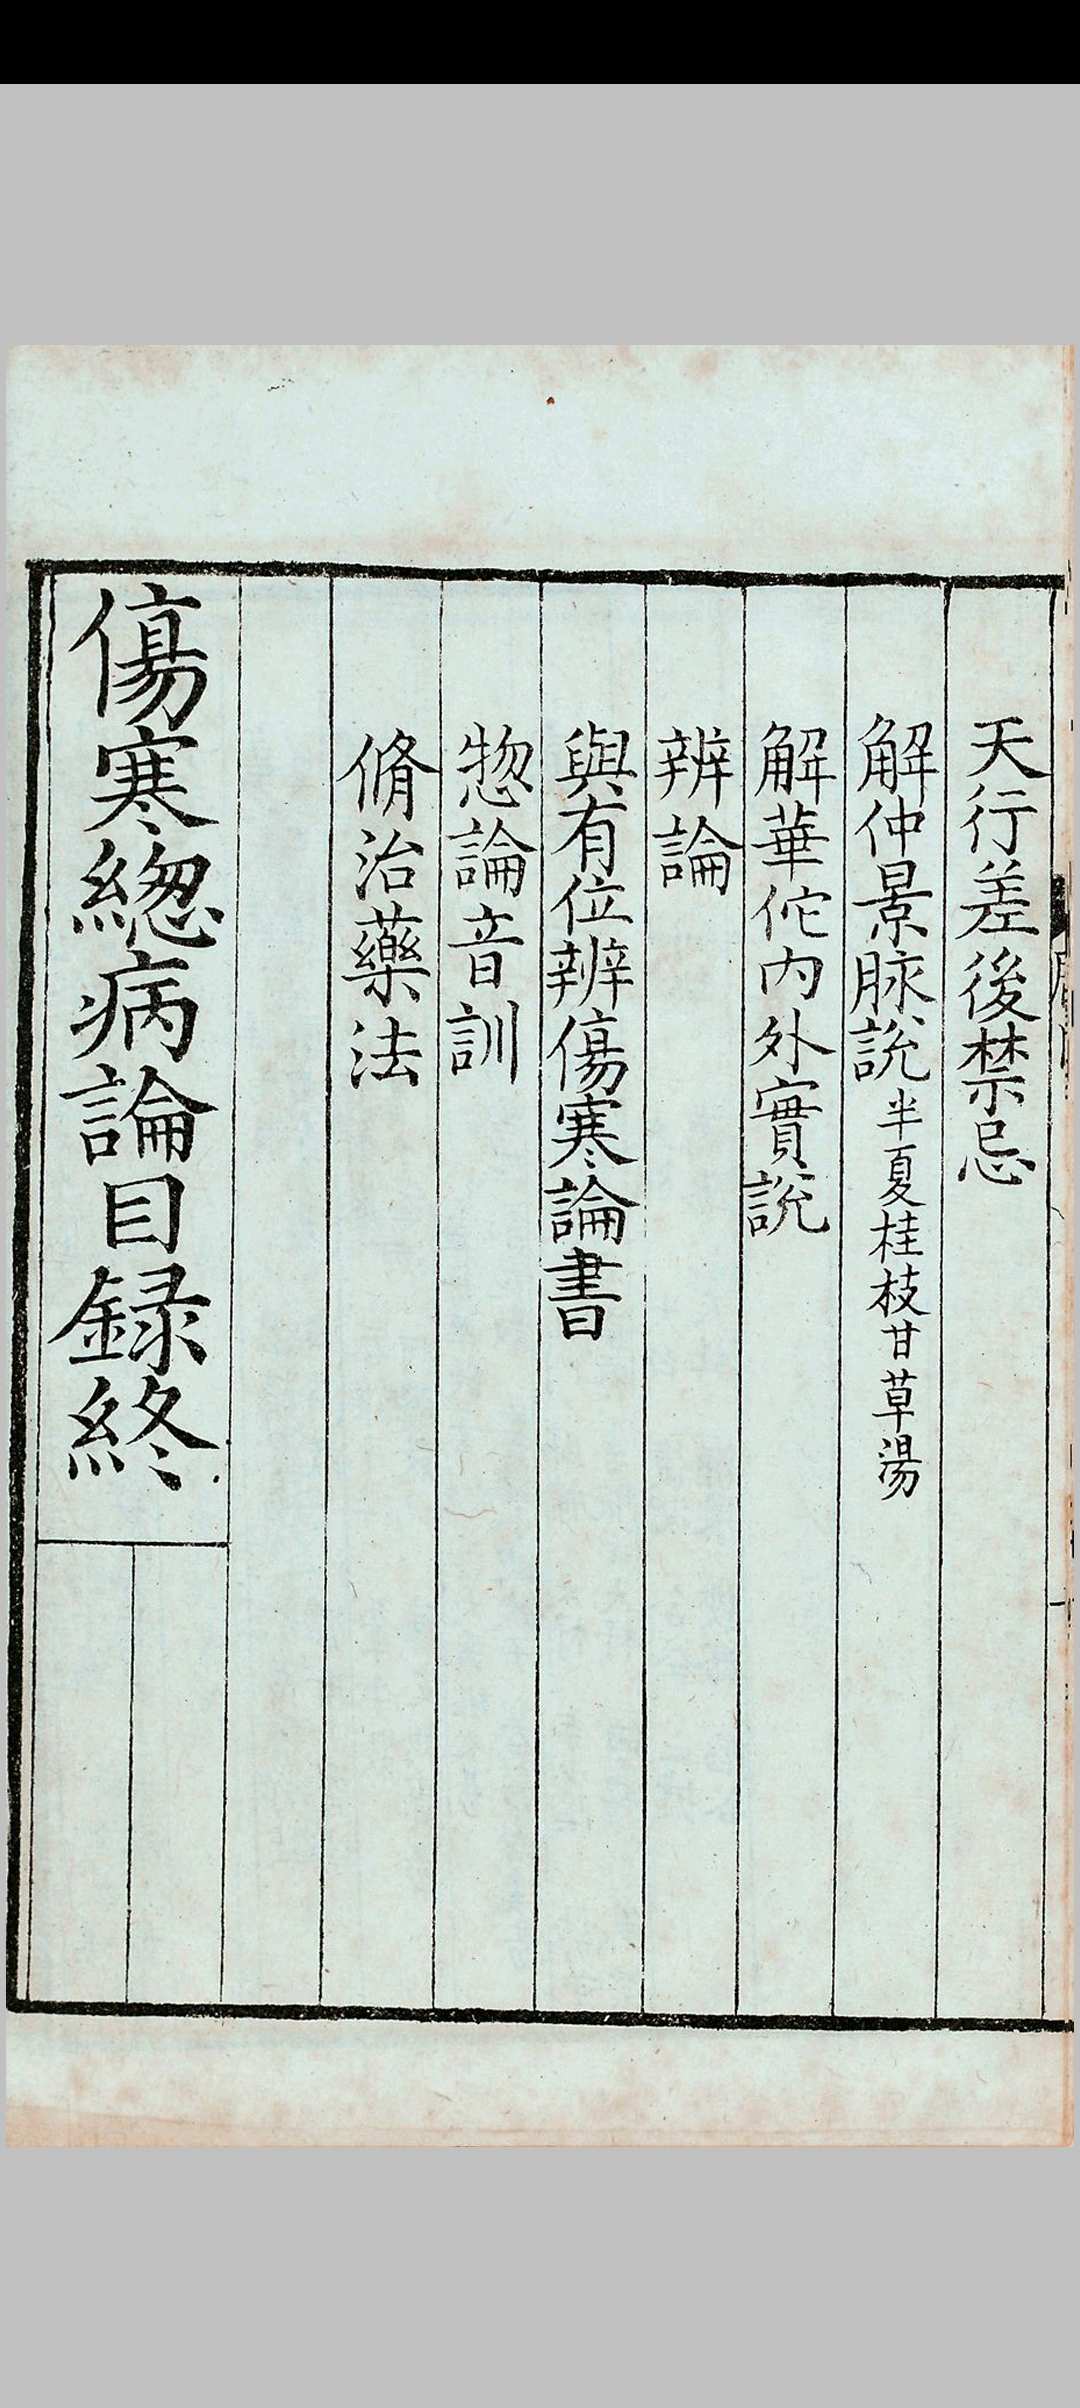 天行差後禁忌
解仲景脉說半夏桂枝甘草湯
解華佗内外實說
辨論
與有位辨傷寒論書
惣論音訓
脩治藥法
傷寒緫病論目録終